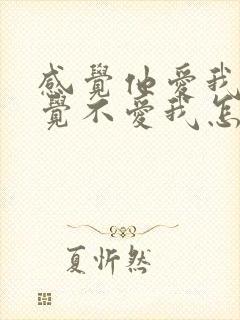 感覺他愛我
覺不愛我怎
夏忻然